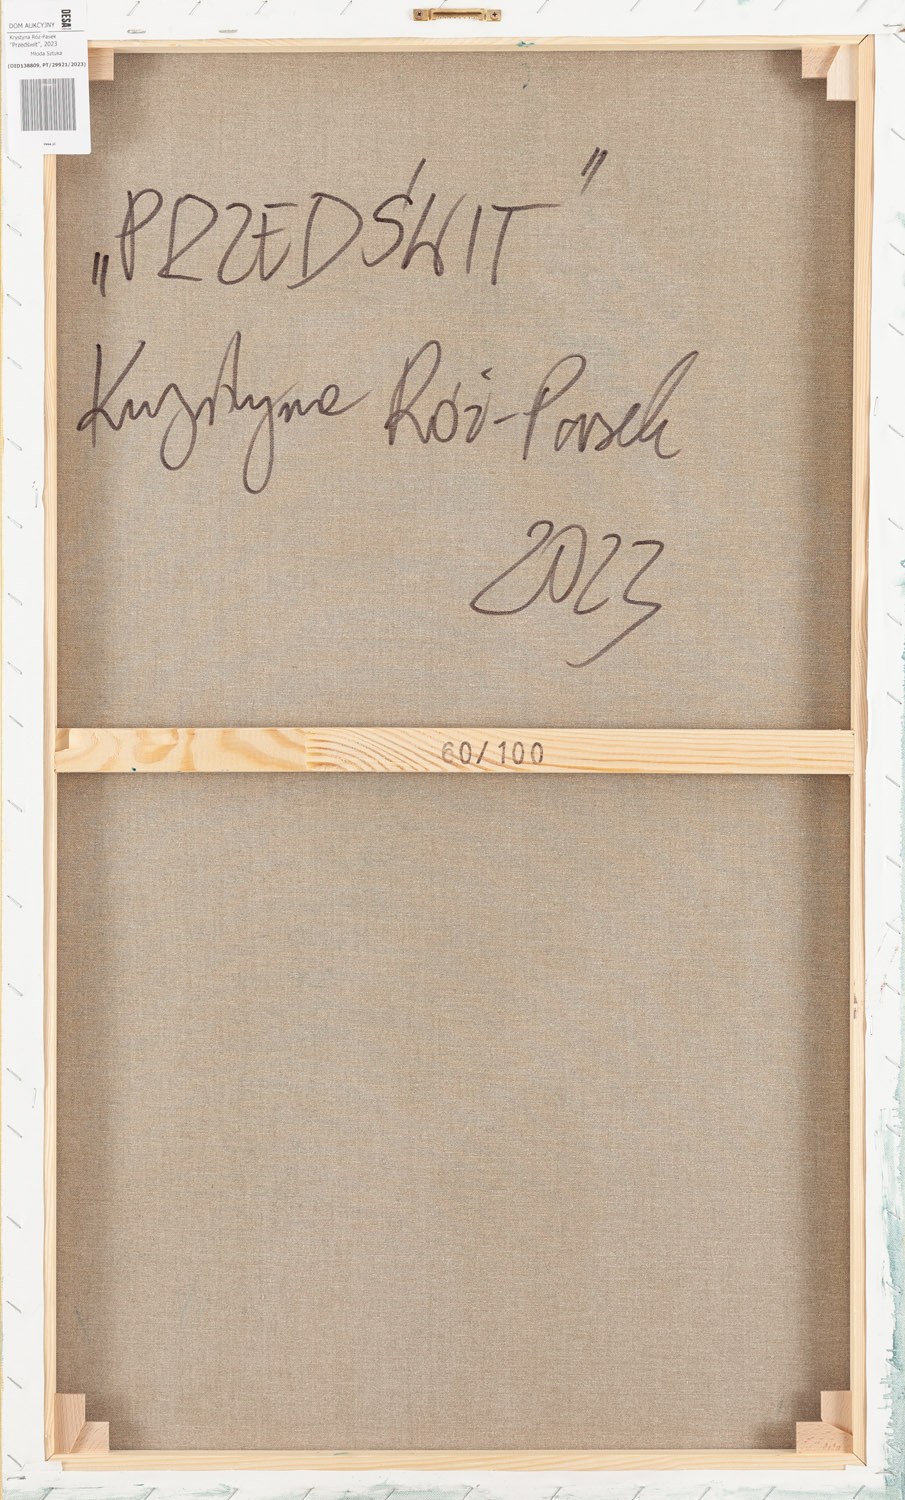 DOM AUKCYJNY
DESA
Krystyna Róż-Pasek
"Przedświt", 2023
Młoda Sztuka
(OID138809, PT/29921/2023)
„PRZEDŚWIT"
Krystyna Róż-Pasek
2023
60/100